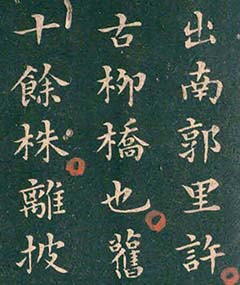 出南郭里許
古柳橋也舊
十餘株離披